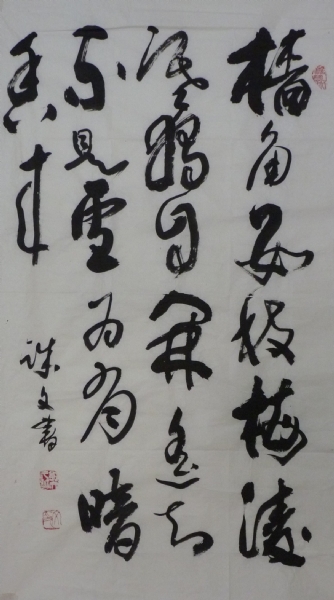 墙角数枝梅凌
寒独自开遥知
不见雪为有暗
香来
文书